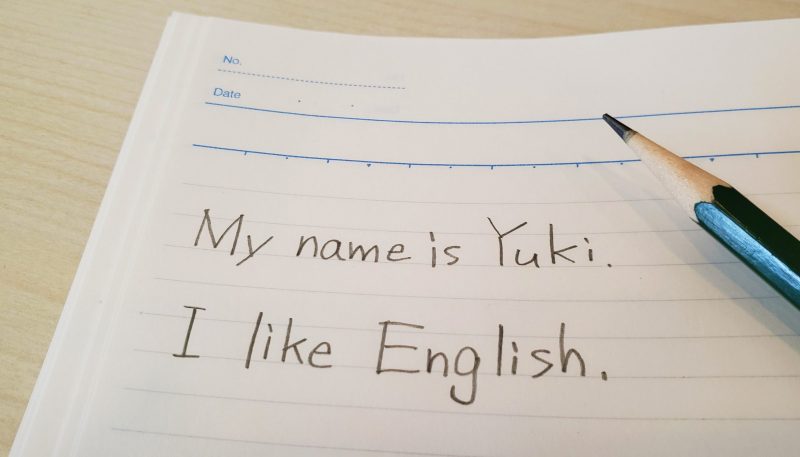 No.
Date
My name is Yuki.
I like English.